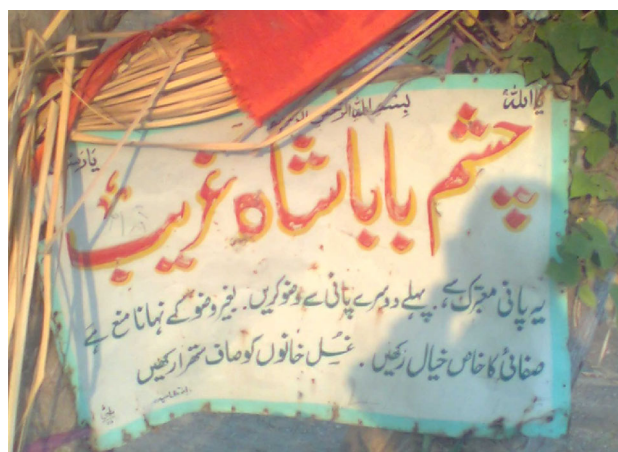 یا اللہ بسم اللہ الرحمن
چشم بابا شاہ غریب
یہ پانی معتبرک ہے، پہلے دوسرے پانی سے وضو کریں. بغیر وضو کے نہانا منع ہے
صفائی کا خاص خیال رکھیں. غسل خانوں کو صاف ستھرا رکھیں